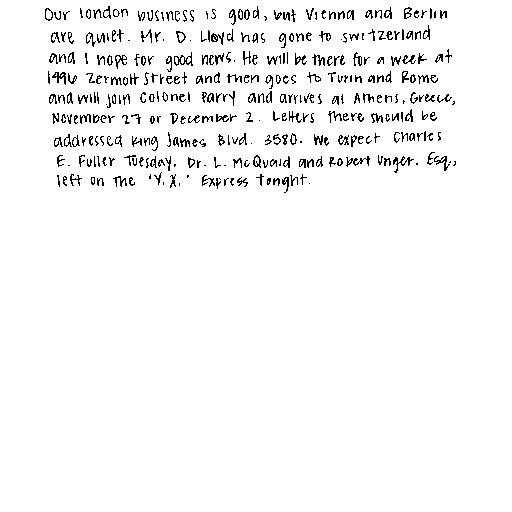 Our London business is good, but Vienna and Berlin
are quiet. Mr. D. Lloyd has gone to Switzerland
and I hope for good news. He will be there for a week at
1496 Zermott Street and then goes to Turin and Rome
and will join Colonel Parry and arrives at Athens, Greece,
November 27 or December 2. Letters there should be
addressed King James Blvd. 3580. We expect Charles
E. Fuller Tuesday. Dr. L. McQuaid and Robert Unger. Esq.,
left on the "Y.X." Express Tonight.